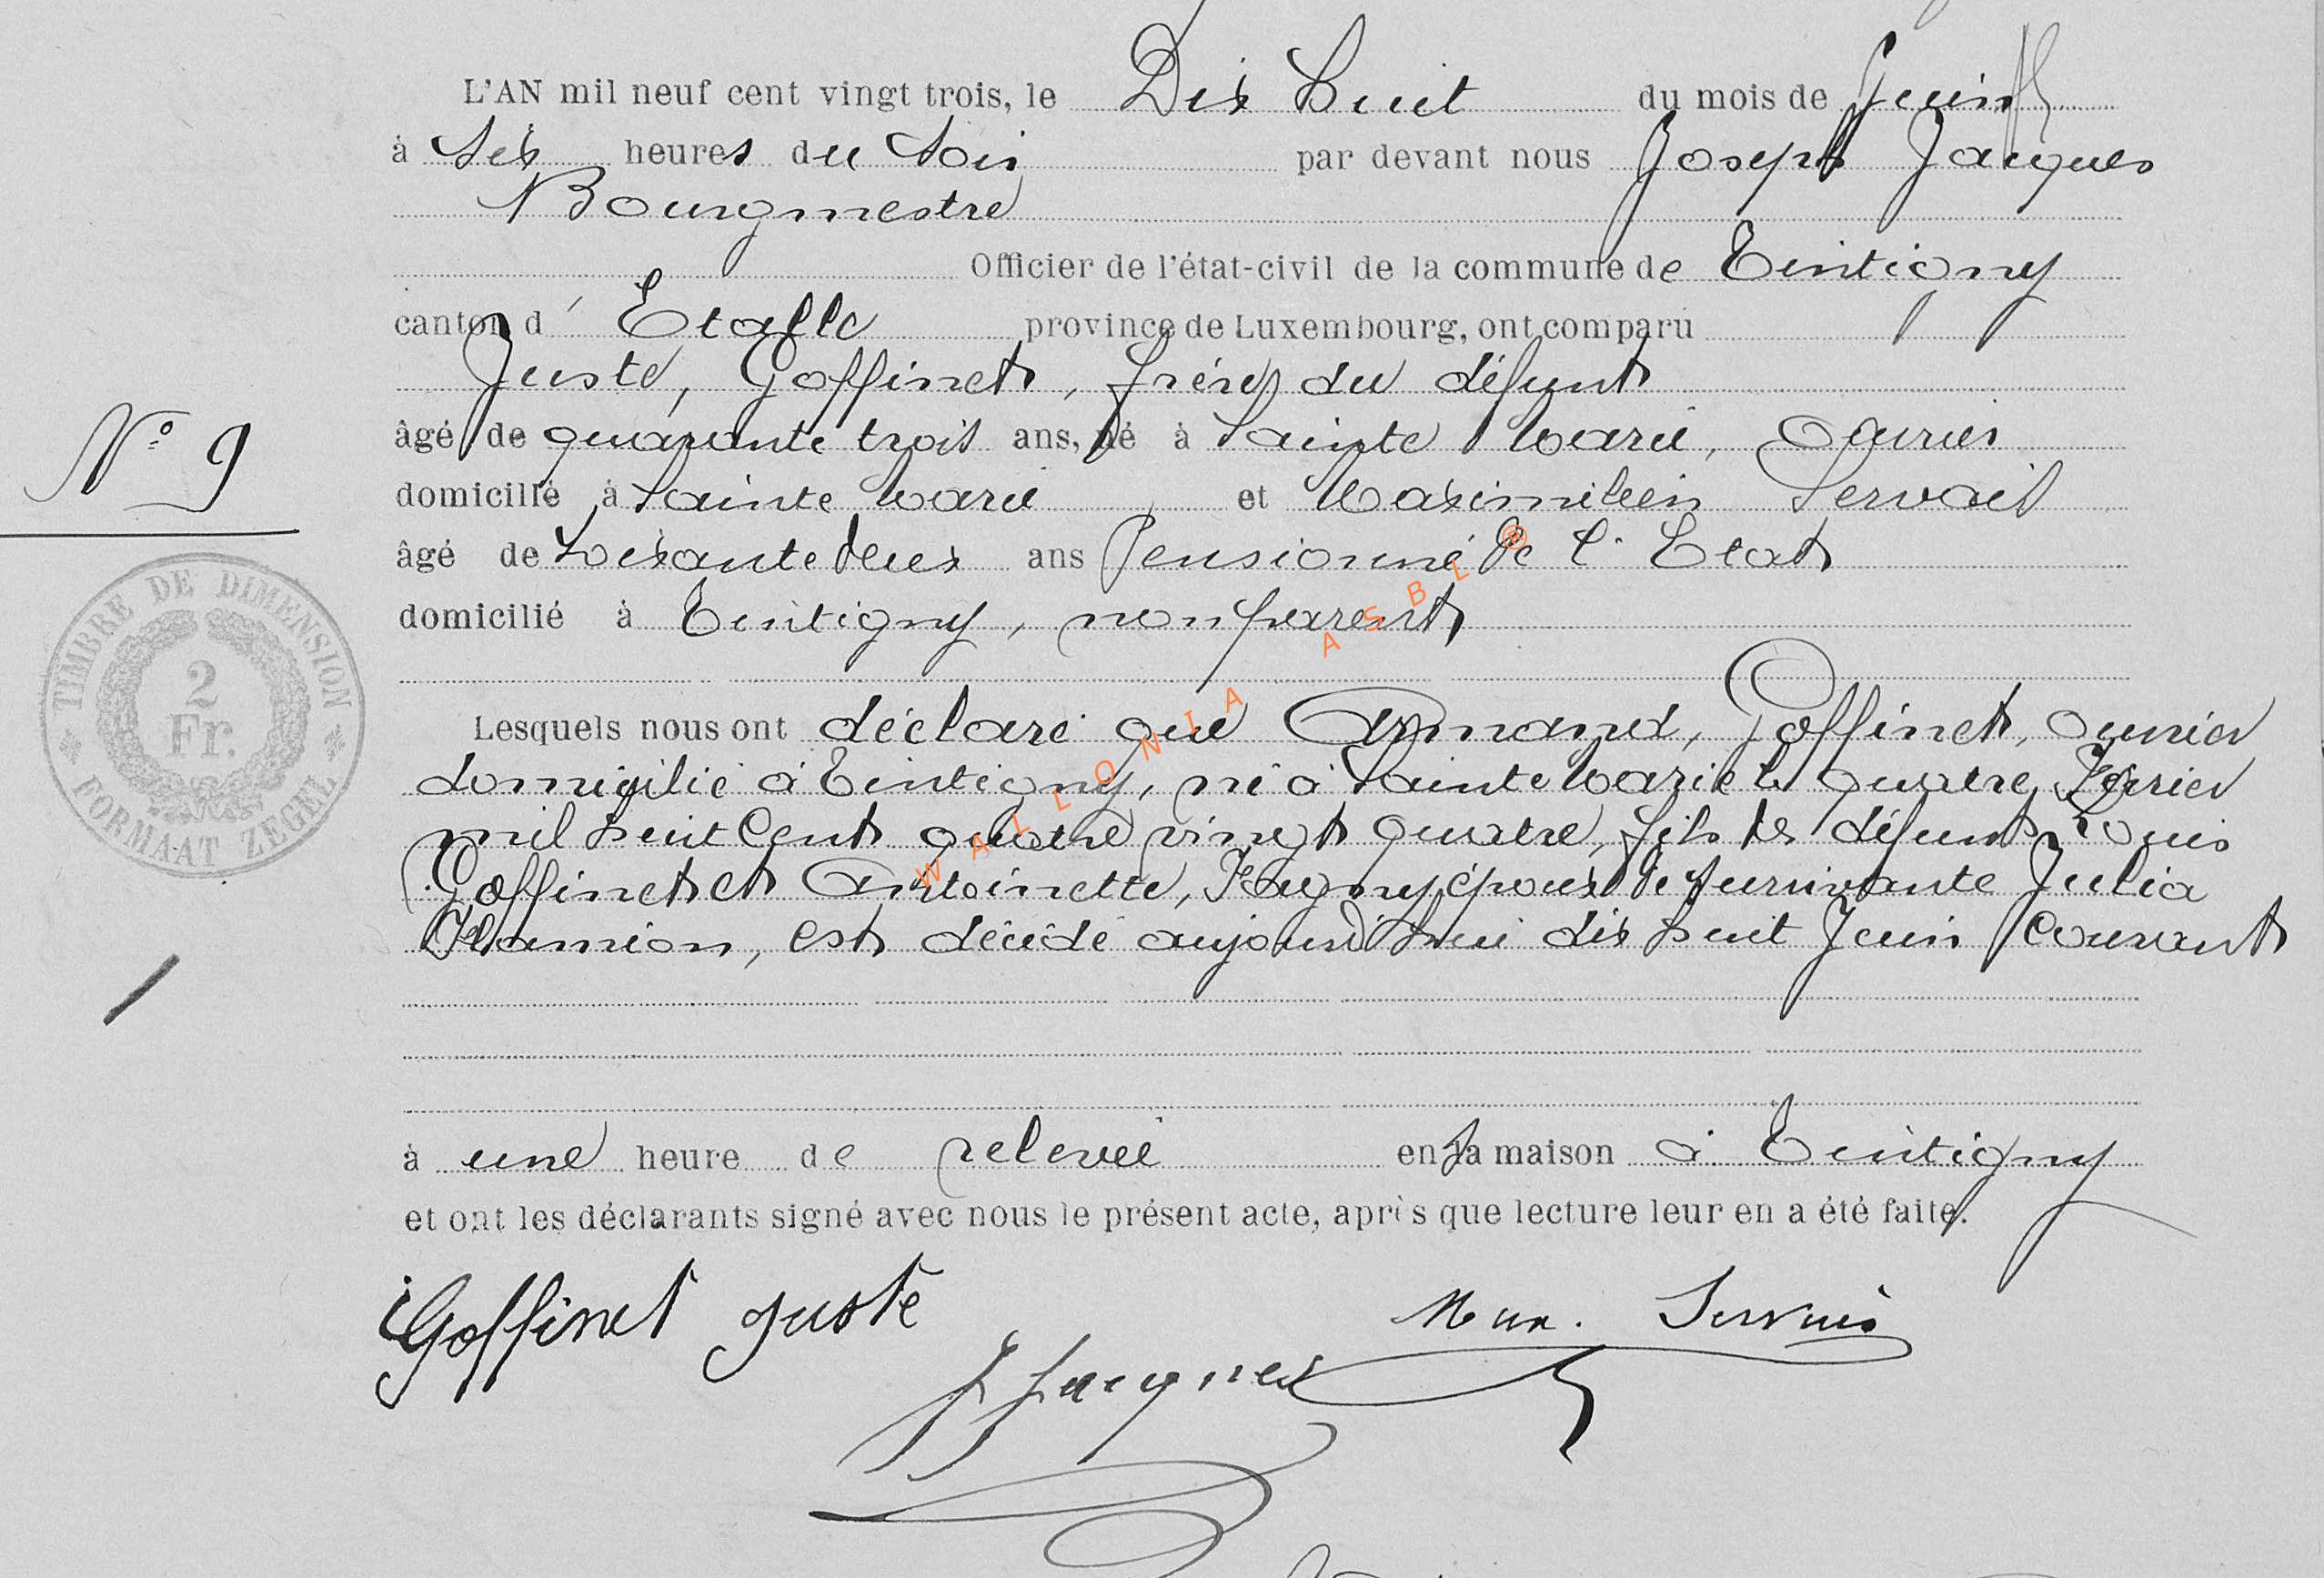 L'AN mil neuf cent vingt trois, le Dix huit du mois de Juin
à six heures du soir par devant nous Joseph Jacques
Bourgmestre
Officier de l'état-civil de la commune de Tintigny
canton d' Etalle province de Luxembourg, ont comparu
Juste, Goffinet, frère du défunt
âgé de quarante trois ans, né à Sainte Marie, ouvrier
N° 9
domicilié à Sainte Marie et Maximilien Servais
âgé de soixante deux ans Pensionné de l'Etat
domicilié à Tintigny, non parent
TIMBRE DE DIMENSION
2
Fr.
FORMAAT ZEGEL
Lesquels nous ont déclaré que Armand, Goffinet, ouvrier
domicilié à Tintigny, né à Sainte Marie le quatre Février
mil huit cent quatre vingt quatre, fils de défunts Louis
Goffinet et Antoinette, Fagny époux de survivante Julia
Hamion, est décédé aujourd'hui dix huit Juin courant
à une heure de relevée en sa maison à Tintigny
et ont les déclarants signé avec nous le présent acte, après que lecture leur en a été faite.
Goffinet Juste
Max. Servais
J Jacques
WALLONIA ASBL ®